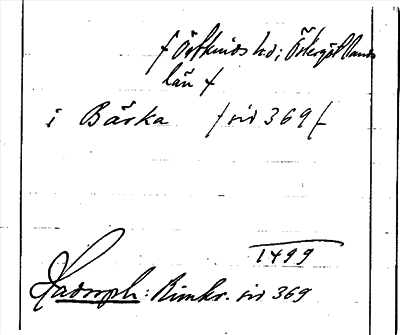 / Östkinds hd; Östergötlands
län /
i Bärka / sid 369 /
1499
Hadorph: Rimkr. sid 369